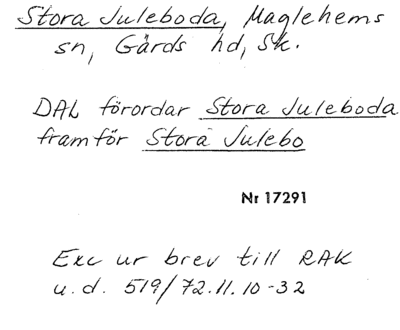 Stora Juleboda, Maglehems
sn, Gärds hd, Sk.
DAL förordar Stora Juleboda
framför Stora Julebo
Nr 17291
Exc ur brev till RAK
u.d. 519/72.11.10-32